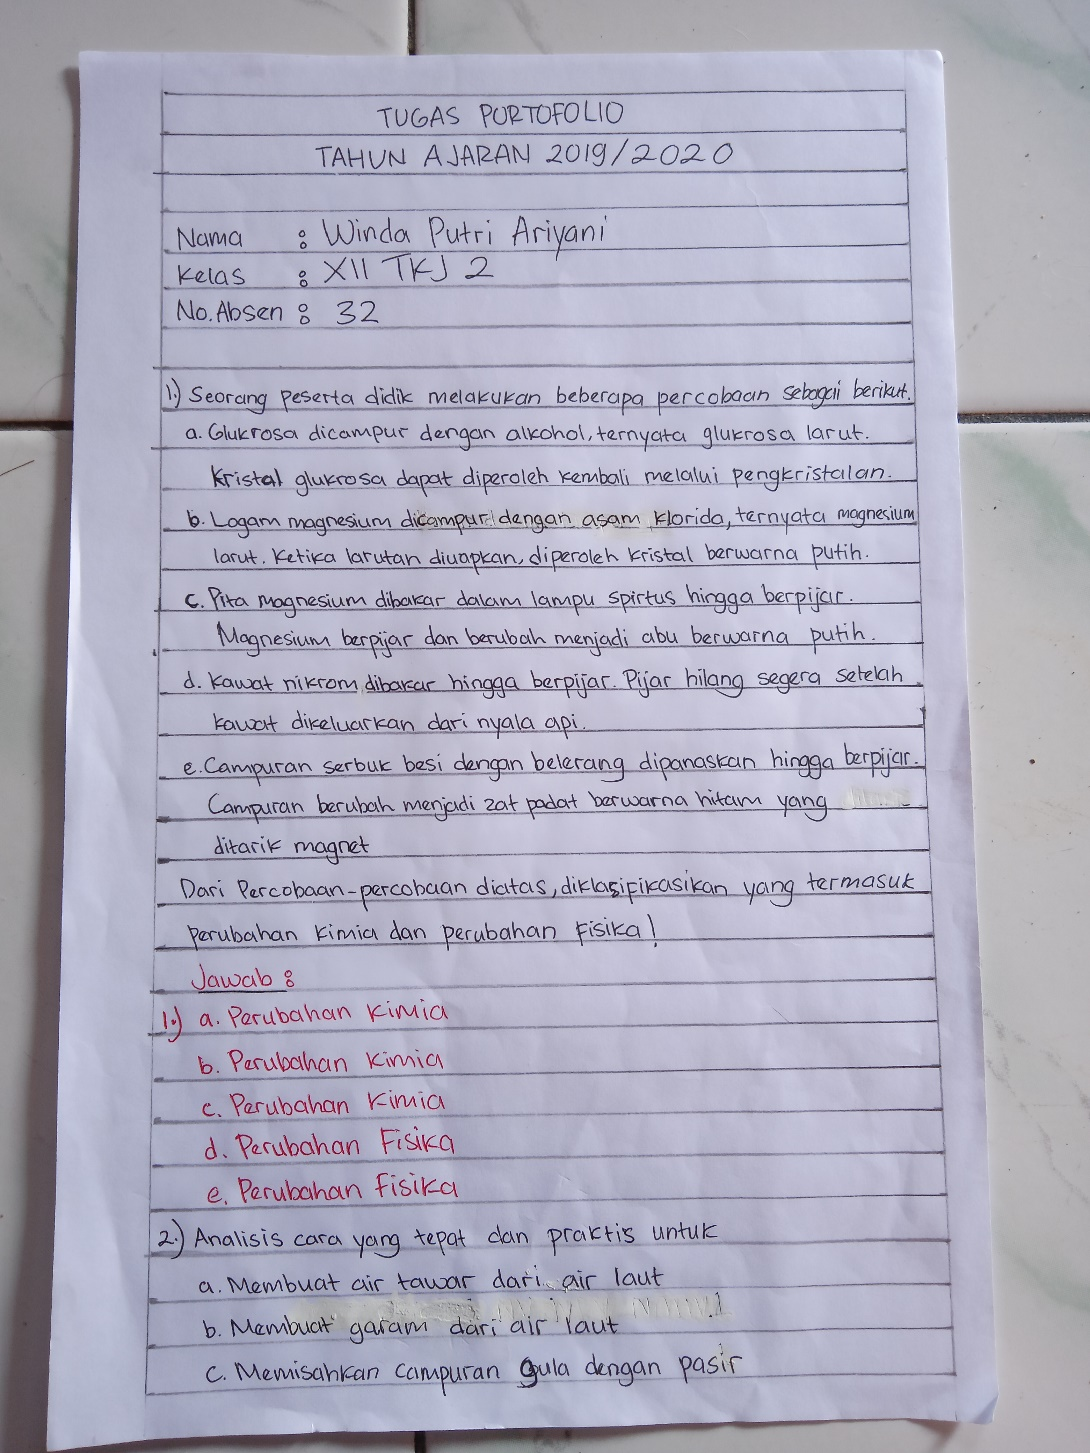 TUGAS PORTOFOLIO
TAHUN AJARAN 2019/2020
Nama : Winda Putri Ariyani
Kelas : XII TKJ 2
No.Absen : 32
1.) Seorang peserta didik melakukan beberapa percobaan sebagai berikut.
a. Glukrosa dicampur dengan alkohol, ternyata glukrosa larut.
Kristal glukrosa dapat diperoleh kembali melalui pengkristalan.
b. Logam magnesium dicampur dengan asam klorida, ternyata magnesium
larut. Ketika larutan diuapkan, diperoleh kristal berwarna putih.
c. Pita magnesium dibakar dalam lampu spirtus hingga berpijar.
Magnesium berpijar dan berubah menjadi abu berwarna putih.
d. Kawat nikrom dibakar hingga berpijar. Pijar hilang segera setelah
kawat dikeluarkan dari nyala api.
e. Campuran serbuk besi dengan belerang dipanaskan hingga berpijar.
Campuran berubah menjadi zat padat berwarna hitam yang
ditarik magnet
Dari Percobaan-percobaan diatas, diklasifikasikan yang termasuk
perubahan kimia dan perubahan Fisika!
Jawab :
1.) a. Perubahan Kimia
b. Perubahan Kimia
c. Perubahan Kimia
d. Perubahan Fisika
e. Perubahan fisika
2.) Analisis cara yang tepat dan praktis untuk
a. Membuat air tawar dari air laut
b. Membuat garam dari air laut
c. Memisahkan campuran gula dengan pasir